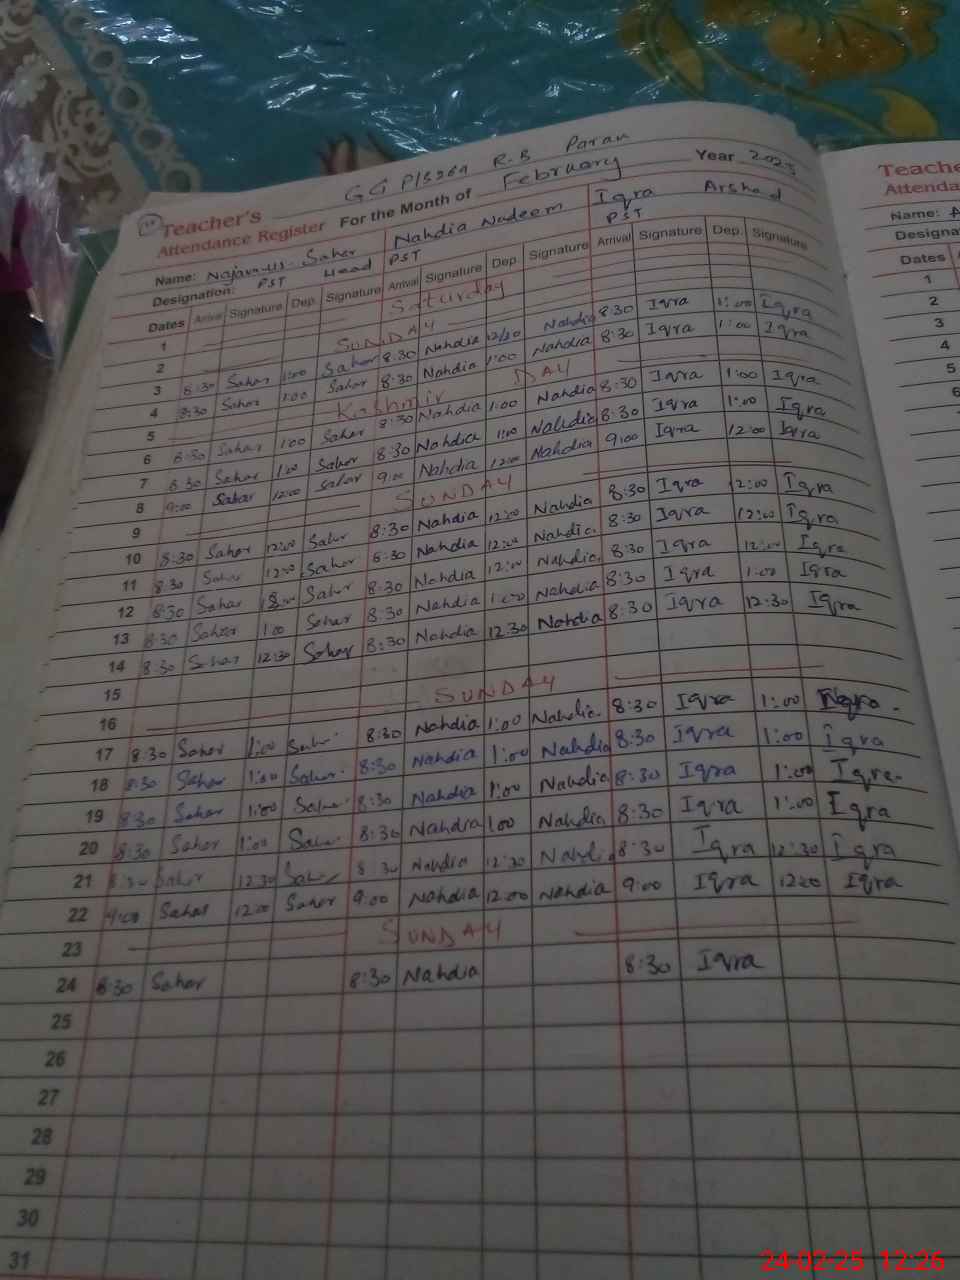 GGP/S 269 R-B Paran
Teacher's
Attendance Register For the Month of February Year 2025
Name: Sahar Nahdia Nadeem Iqra Arshad
Designation: PST Head PST PST
Dates Arrival Signature Dep. Signature Arrival Signature Dep. Signature Arrival Signature Dep. Signature
1 Saturday
2 SUNDAY
3 8:30 Sahar 1:00 Sahar 8:30 Nahdia 12/30 Nahdia 8:30 Iqra 1:00 Iqra
4 8:30 Sahar 1:00 Sahar 8:30 Nahdia 1:00 Nahdia 8:30 Iqra 1:00 Iqra
5 Kashmir DAY
6 8:30 Sahar 1:00 Sahar 8:30 Nahdia 1:00 Nahdia 8:30 Iqra 1:00 Iqra
7 8:30 Sahar 1:00 Sahar 8:30 Nahdia 1:00 Nahdia 8:30 Iqra 1:00 Iqra
8 9:00 Sahar 12:00 Sahar 9:00 Nahdia 12:00 Nahdia 9:00 Iqra 12:00 Iqra
9 SUNDAY
10 8:30 Sahar 12:00 Sahar 8:30 Nahdia 12:00 Nahdia 8:30 Iqra 12:00 Iqra
11 8:30 Sahar 12:00 Sahar 8:30 Nahdia 12:00 Nahdia 8:30 Iqra 12:00 Iqra
12 8:30 Sahar Sahar 8:30 Nahdia 12:00 Nahdia 8:30 Iqra 12:00 Iqra
13 8:30 Sahar 1:00 Sahar 8:30 Nahdia 1:00 Nahdia 8:30 Iqra 1:00 Iqra
14 8:30 Sahar 12:30 Sahar 8:30 Nahdia 12:30 Nahdia 8:30 Iqra 12:30 Iqra
15
16 SUNDAY
17 8:30 Sahar 1:00 Sahar 8:30 Nahdia 1:00 Nahdia 8:30 Iqra 1:00 Iqra
18 8:30 Sahar 1:00 Sahar 8:30 Nahdia 1:00 Nahdia 8:30 Iqra 1:00 Iqra
19 8:30 Sahar 1:00 Sahar 8:30 Nahdia 1:00 Nahdia 8:30 Iqra 1:00 Iqra
20 8:30 Sahar 1:00 Sahar 8:30 Nahdia 1:00 Nahdia 8:30 Iqra 1:00 Iqra
21 8:30 Sahar 12:30 Sahar 8:30 Nahdia 12:30 Nahdia 8:30 Iqra 12:30 Iqra
22 9:00 Sahar 12:00 Sahar 9:00 Nahdia 12:00 Nahdia 9:00 Iqra 12:00 Iqra
23 SUNDAY
24 8:30 Sahar 8:30 Nahdia 8:30 Iqra
25
26
27
28
29
30
31
Teache
Attenda
Name: A
Designa
Dates
1
2
3
4
5
6
24-02-25 12:26